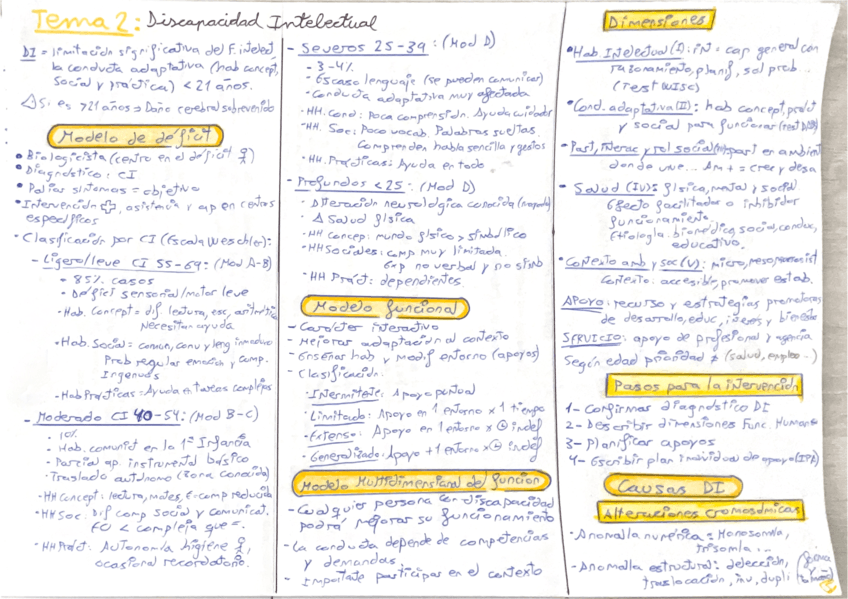 Tema 2: Discapacidad Intelectual
DI = limitación significativa del F. intelect,
la conducta adaptativa (hab concept,
social y práctica) < 21 años.
△S: es >21 años → Daño cerebral sobrevenido
Modelo de déficit
• Biologicista (centro en el déficit
• Diagnóstico: CI
• Paliar síntomas = objetivo
• Intervención, asistencia y cap en centros
específicos
• Clasificación por CI (Escala Weschler):
- Ligero/leve CI 55-69: (Mod A-B)
- 85% casos
- Déficit sensorial/motor leve
- Hab. Concept = dif lectura, esc, aritmética
Necesitan ayuda
• Hab. Social = comun, conv y leng inmaduro
Prob regular emoción y comp.
Ingenuos
- Hab Prácticas: Ayuda en tareas complejas
- Moderado CI 40-54: (Mod B-C)
- 10%
- Hab. comunit en la 1ª Infancia
- Parcial ap. instrumental básico
- Traslado autónomo (zona conocida)
- HH Concept: lectura, mates, € = comp reducida
- HH Soc: Dif comp social y comunicat.
EO < compleja que =.
- HH Práct: Autonomía higiene
ocasional recordatorio.
- Severos 25-39: (Mod D)
- 3-4%
- Escaso lenguaje (se pueden comunicar)
- Conducta adaptativa muy afectada
- HH. Cond: Poca comprensión. Ayuda cuidador
- HH. Soc: Poco vocab. Palabras sueltas.
Comprenden habla sencillo y gestos
- HH. Prácticas: Ayuda en todo
- Profundos < 25: (Mod D)
- Alteración neurológica conocida
- △ Salud física
- HH Concep: mundo físico > simbólico
- HH Sociales: comp muy limitada.
Exp no verbal y no simb
- HH Práct: dependientes.
Modelo funcional
- Carácter interactivo
- Mejorar adaptación al contexto
- Enseñar hab y modif entorno (apoyos)
- Clasificación:
· Intermitente: Apoyo puntual
· Limitado: Apoyo en 1 entorno x 1 tiempo
· Extenso: Apoyo en 1 entorno x indef
· Generalizado: Apoyo +1 entorno x indef
Modelo Multidimensional del funcion
- Cualquier persona con discapacidad
podrá mejorar su funcionamiento
- La conducta depende de competencias
y demandas.
- Importante participar en el contexto
Dimensiones
• Hab Intelectual (I): iN = cap general con
razonamiento, planif, sol prob.
(Test WISC)
• Cond. adaptativa (II): hab concept, práct
y social para funcionar
• Part, interac y rol social (III): part en ambient
donde vive... Am + = crez y desa
• Salud (IV): física, mental y social
Efecto facilitador o inhibidor
funcionamiento.
Etiología. biomédica, social, conduc,
educativo.
• Contexto amb y soc (V): micro, meso, macrosist
Contexto: accesible, promover estab.
APOYO: recurso y estrategias promotoras
de desarrollo, educ, interés y bienest
SERVICIO: apoyo de profesional y agencia
Según edad prioridad ≠ (salud, empleo..)
Pasos para la intervención
1- Confirmar diagnóstico DI
2- Describir dimensiones Func. Humano
3- Planificar apoyos
4- Escribir plan individual de apoyo (IPA)
Causas DI
Alteraciones cromosómicas
- Anomalía numérica: Monosomía,
trisomía...
- Anomalía estructural: delección,
traslocación, inv, dupli